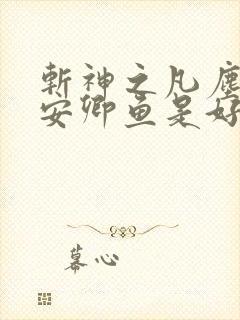 斩神之凡尘
安卿鱼是好
幕心